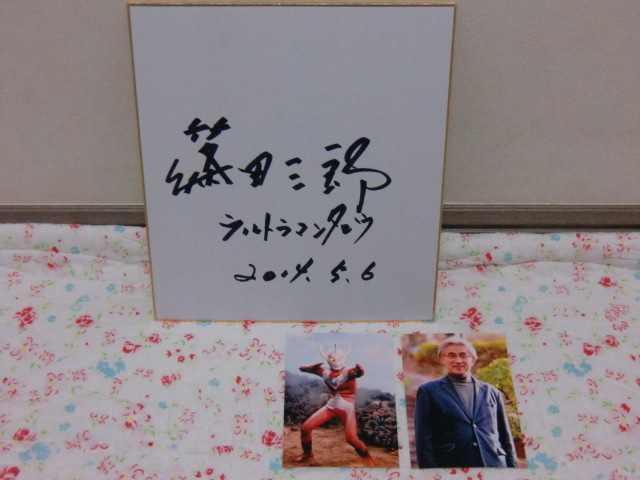 篠田三郎
ウルトラマンタロウ
2014. 5. 6